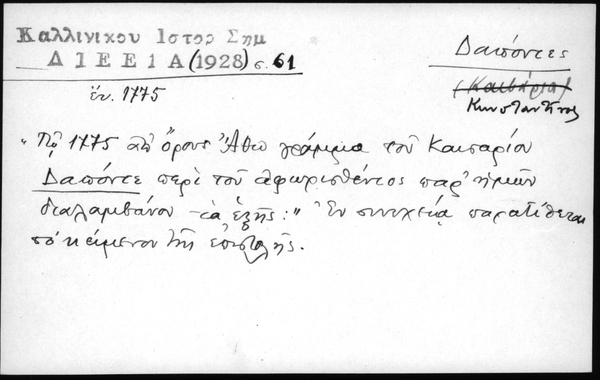 Καλλινικου Ιστορ Σημ
ΔΙΕΕ1Α (1928) σ. 61
ἔτ. 1775
Δαπόντες
(Καισάριος)
Κωνσταντῖνος
"Τῷ 1775 ἀπὸ ὄρους Ἄθω γράμμα τοῦ Καισαρίου
Δαπόντε περὶ τοῦ ἀφορισθέντος παρ' ἡμῶν
διαλαμβάνον τὰ ἑξῆς:" Ἐν συνεχείᾳ παρατίθεται
τὸ κείμενον τῆς ἐπιστολῆς.